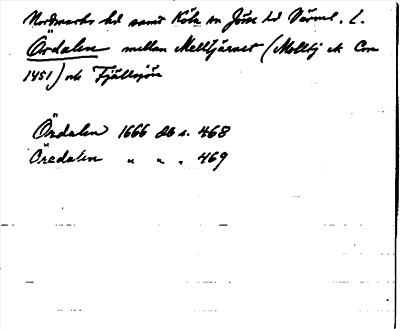 Nordmarks hd samt Köla sn Jösse hd Värml. l.
Ördalen mellan Melltjärnet (Melltj ek Con
1451) och Fjällsjön
Ördalen 1666 Jb s. 468
Öredalen " " " 469